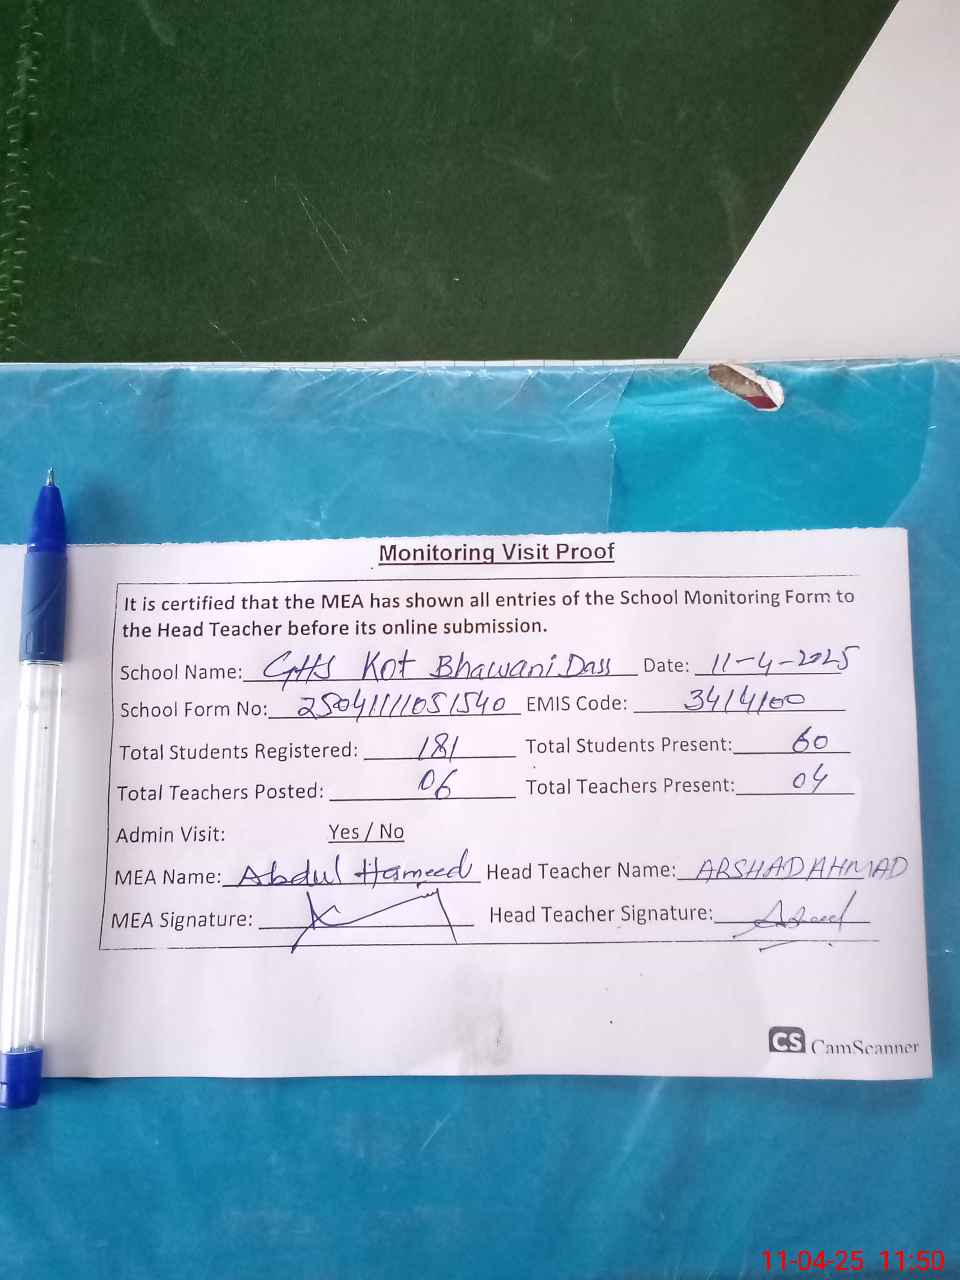 Monitoring Visit Proof
It is certified that the MEA has shown all entries of the School Monitoring Form to
the Head Teacher before its online submission.
School Name: GHS Kot Bhawani Dass Date: 11-4-2025
School Form No: 25041111051540 EMIS Code: 34141100
Total Students Registered: 181 Total Students Present: 60
Total Teachers Posted: 06 Total Teachers Present: 04
Admin Visit: Yes / No
MEA Name: Abdul Hameed Head Teacher Name: ARSHAD AHMAD
MEA Signature: Head Teacher Signature:
CS CamScanner
11-04-25 11:50